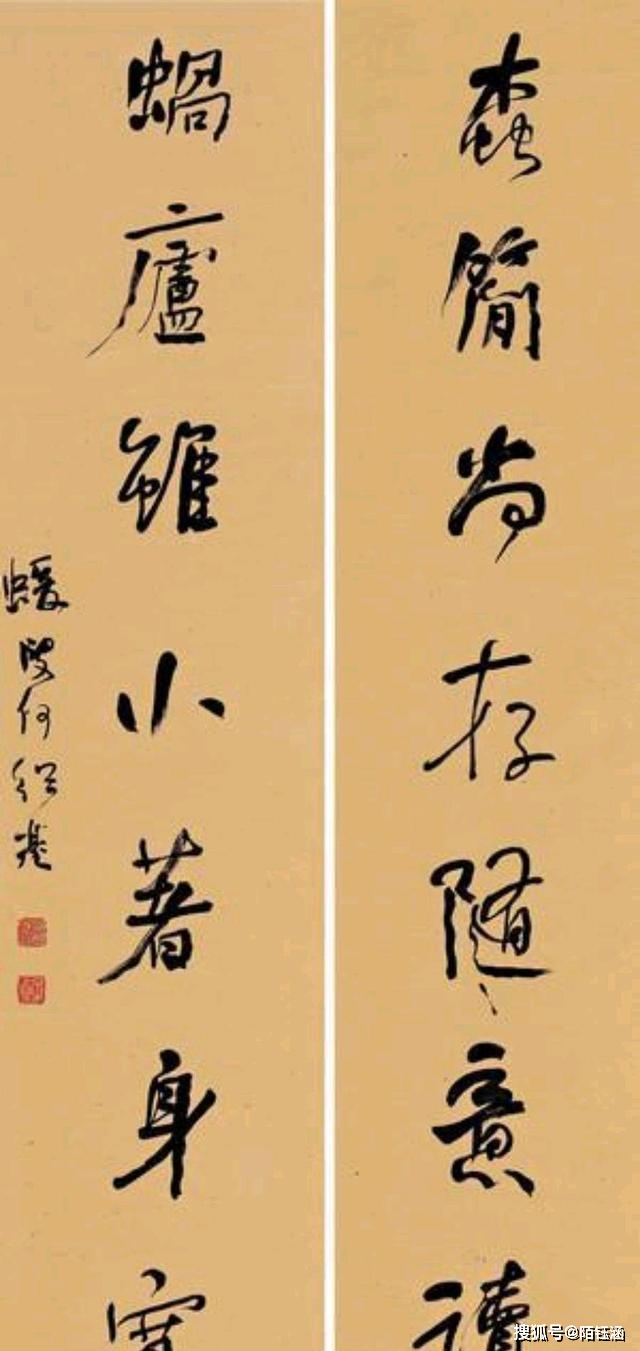 螙簡尚存隨意讀
蝸廬雖小著身寬
蝯叟何紹基
搜狐号@陌钰涵